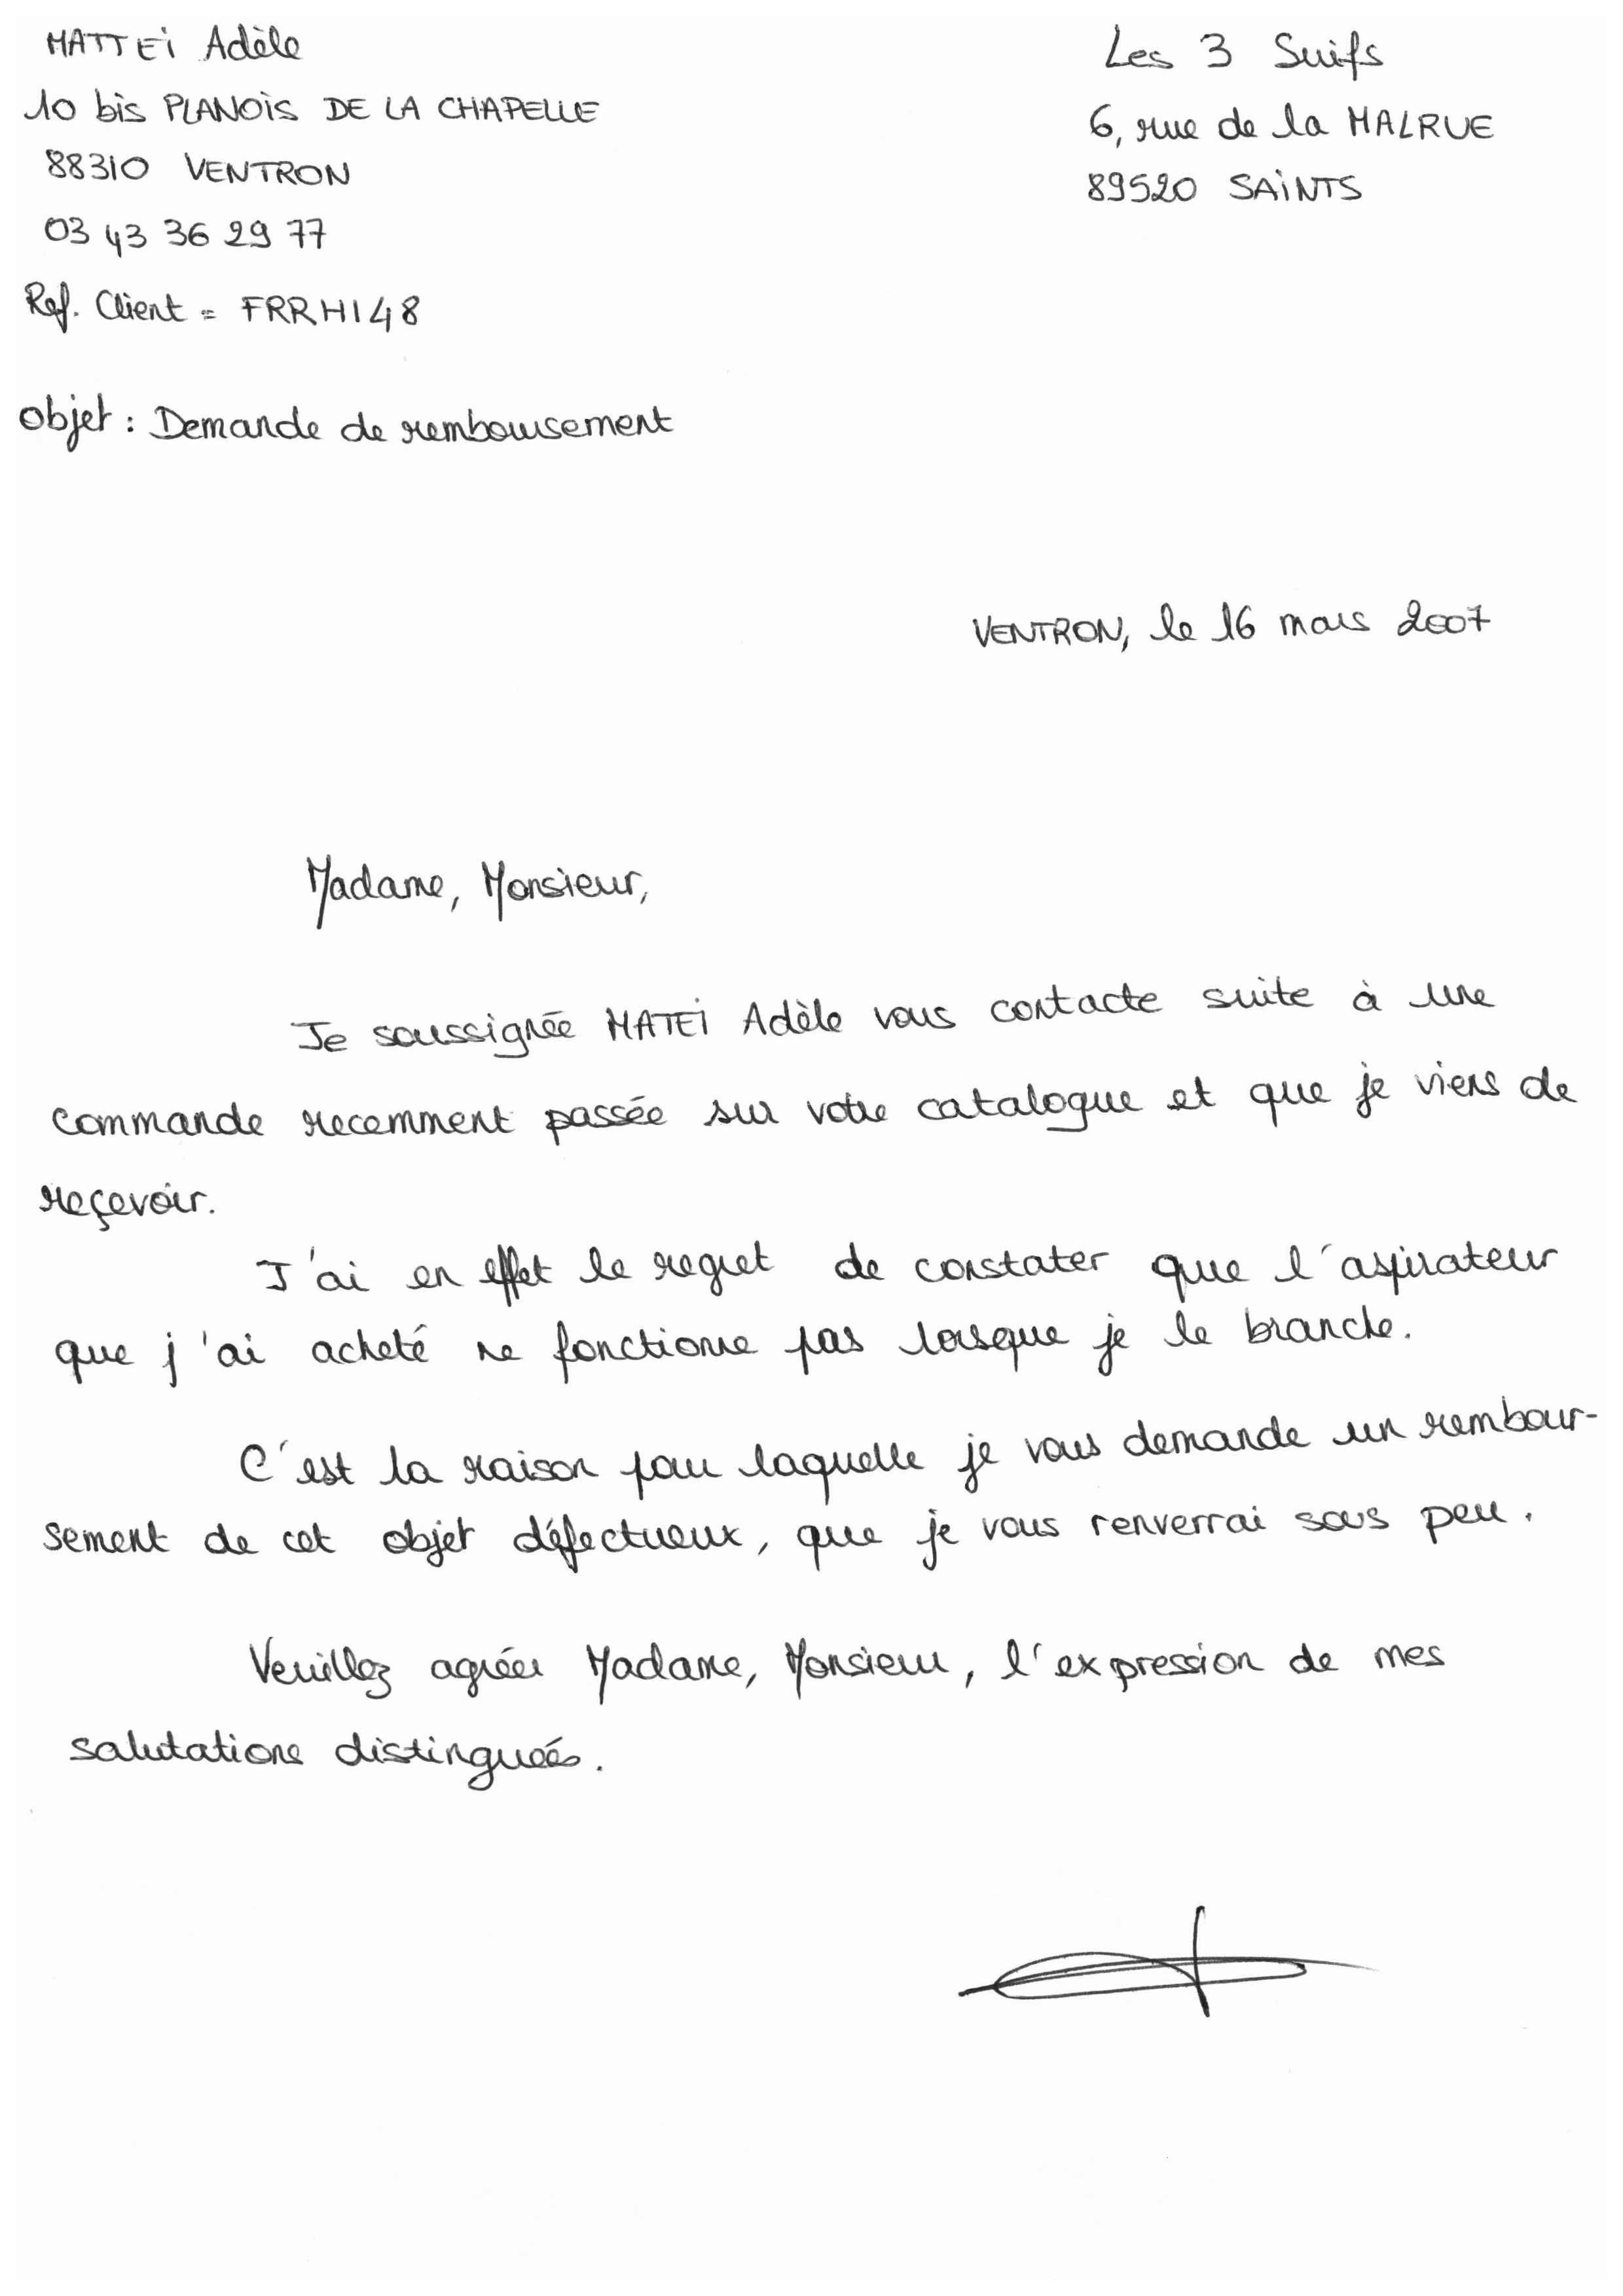 MATTEI Adèle
10 bis PLANOIS DE LA CHAPELLE
88310 VENTRON
03 43 36 29 77
Ref. Client = FRRH148
Objet : Demande de remboursement
Les 3 Suifs
6, rue de la MALRUE
89520 SAINTS
VENTRON, le 16 mars 2007
Madame, Monsieur,
Je soussignée MATEI Adèle vous contacte suite à une
commande recemment passée sur votre catalogue et que je viens de
reçevoir.
J'ai en effet le regret de constater que l'aspirateur
que j'ai acheté ne fonctionne pas lorsque je le branche.
C'est la raison pour laquelle je vous demande un rembour-
sement de cet objet défectueux, que je vous renverrai sous peu.
Veuillez agréer Madame, Monsieur, l'expression de mes
salutations distinguées.